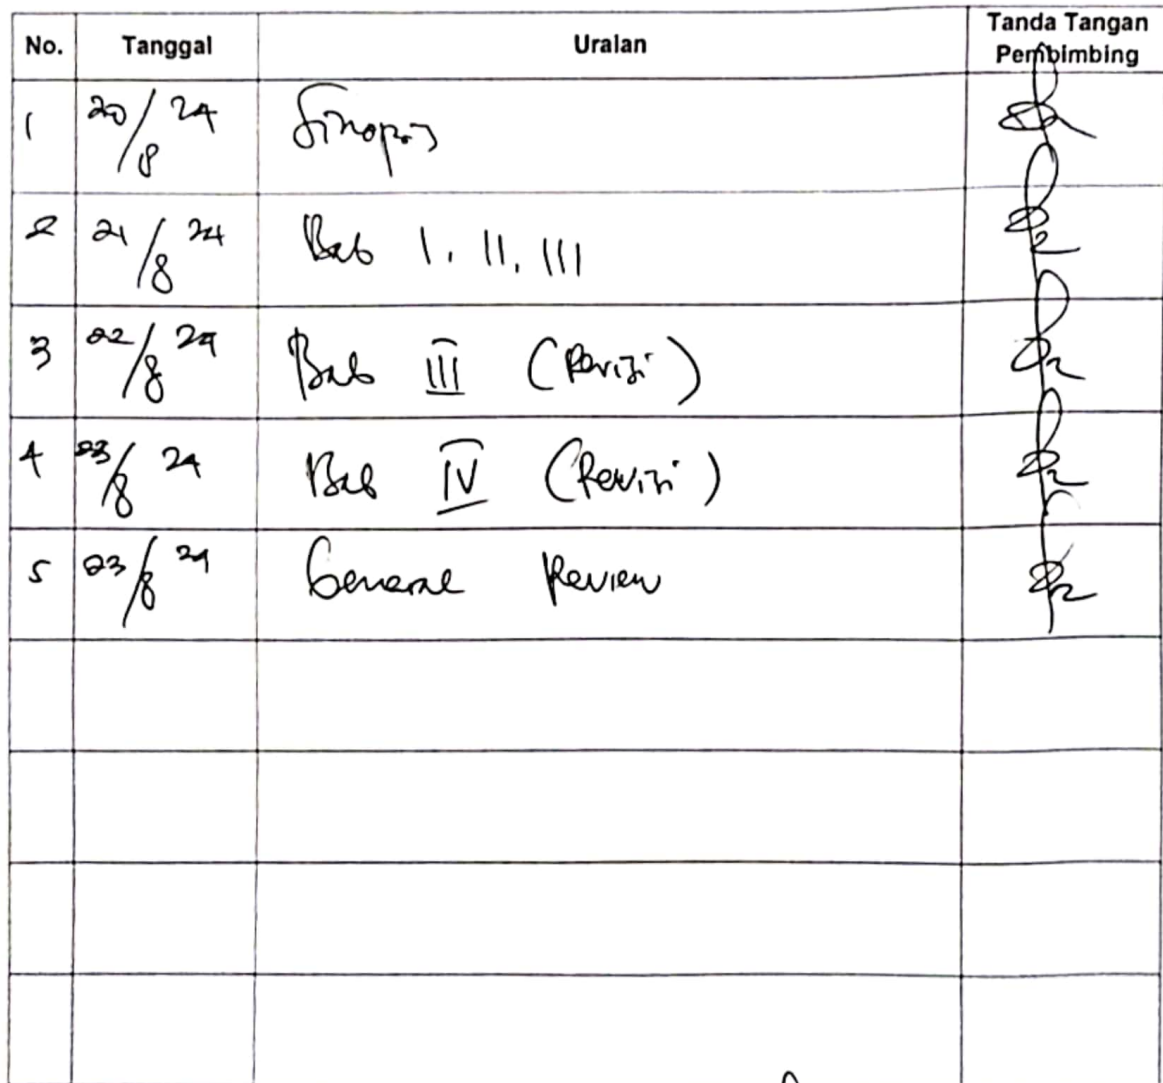 No. Tanggal Uraian Tanda Tangan Pembimbing
1 20/8 24 Sinopsis
2 21/8 24 Bab I, II, III
3 22/8 24 Bab III (Revisi)
4 23/8 24 Bab IV (Revisi)
5 23/8 24 General Review